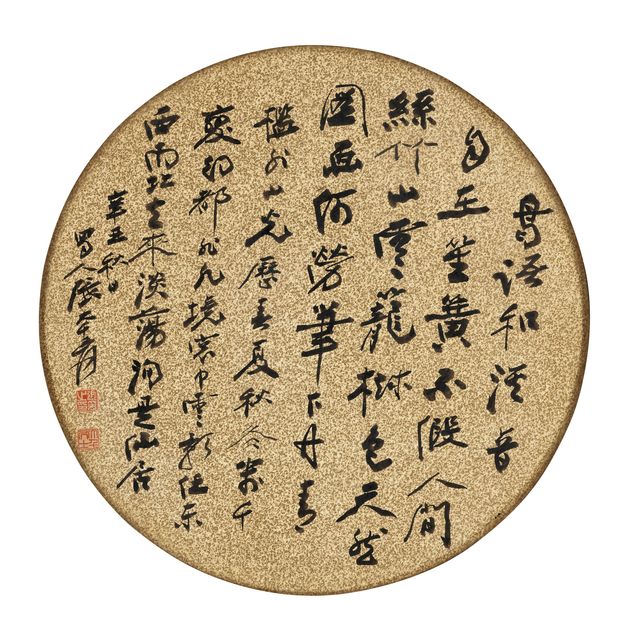 鳥語和溪音
自在笙簧不假人間
絲竹山雲籠樹色天然
圖畫何勞筆下丹青
檻外山光歷春夏秋冬萬千
變幻都非凡境窗中雲影任东
西南北去來淡蕩洵是仙居
辛丑秋日
蜀人張大千爰